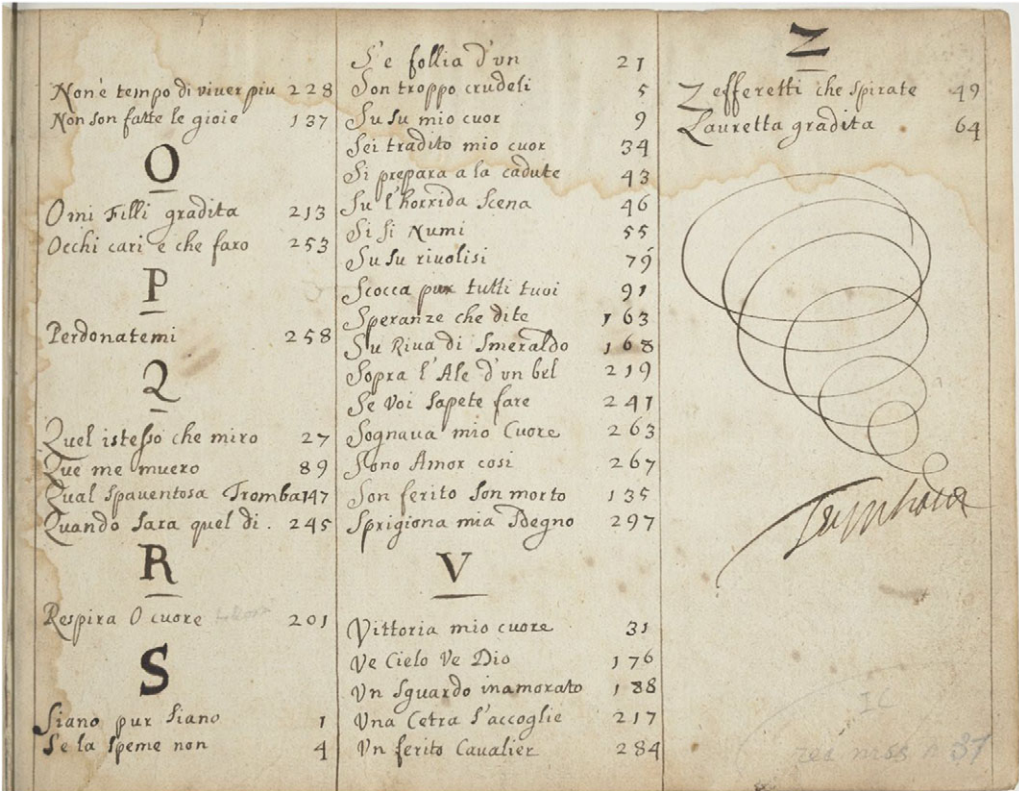 Non è tempo di viuer piu 228
Non son fatte le gioie 137
O
O mi Filli gradita 213
Occhi cari e che faro 253
P
Perdonatemi 258
Q
Quel istesso che miro 27
Que me muero 89
Qual spauentosa Tromba 147
Quando sara quel di . 245
R
Respira O cuore 201
S
Siano pur siano 1
Se la speme non 4
S'e follia d'vn 21
Son troppo crudeli 5
Su su mio cuor 9
Sei tradito mio cuor 34
Si prepara a la cadute 43
Su l'horrida scena 46
Si si Numi 55
Su su riuolisi 79
Scocca pur tutti tuoi 91
Speranze che dite 163
Su Riua di Smeraldo 168
Sopra l'Ale d'vn bel 219
Se Voi sapete fare 241
Sognaua mio Cuore 263
Sono Amor cosi 267
Son ferito son morto 135
Sprigiona mia sdegno 297
V
Vittoria mio cuore 31
Ve Cielo Ve Dio 176
Vn sguardo inamorato 188
Vna Cetra s'accoglie 217
Vn ferito Caualier 284
Z
Zefferetti che spirate 49
Lauretta gradita 64
res mss n 37